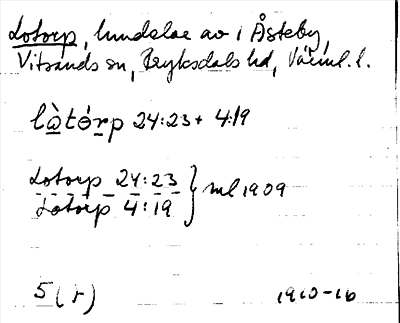 Lotorp, lundelar av i Åsteby,
Vitsands sn, Fryksdals hd, Värml. l.
lòtórp 24:23 + 4:19
Lotorp 24:23
Lotorp 4:19 } ml 1909
5 (r) 1910-16